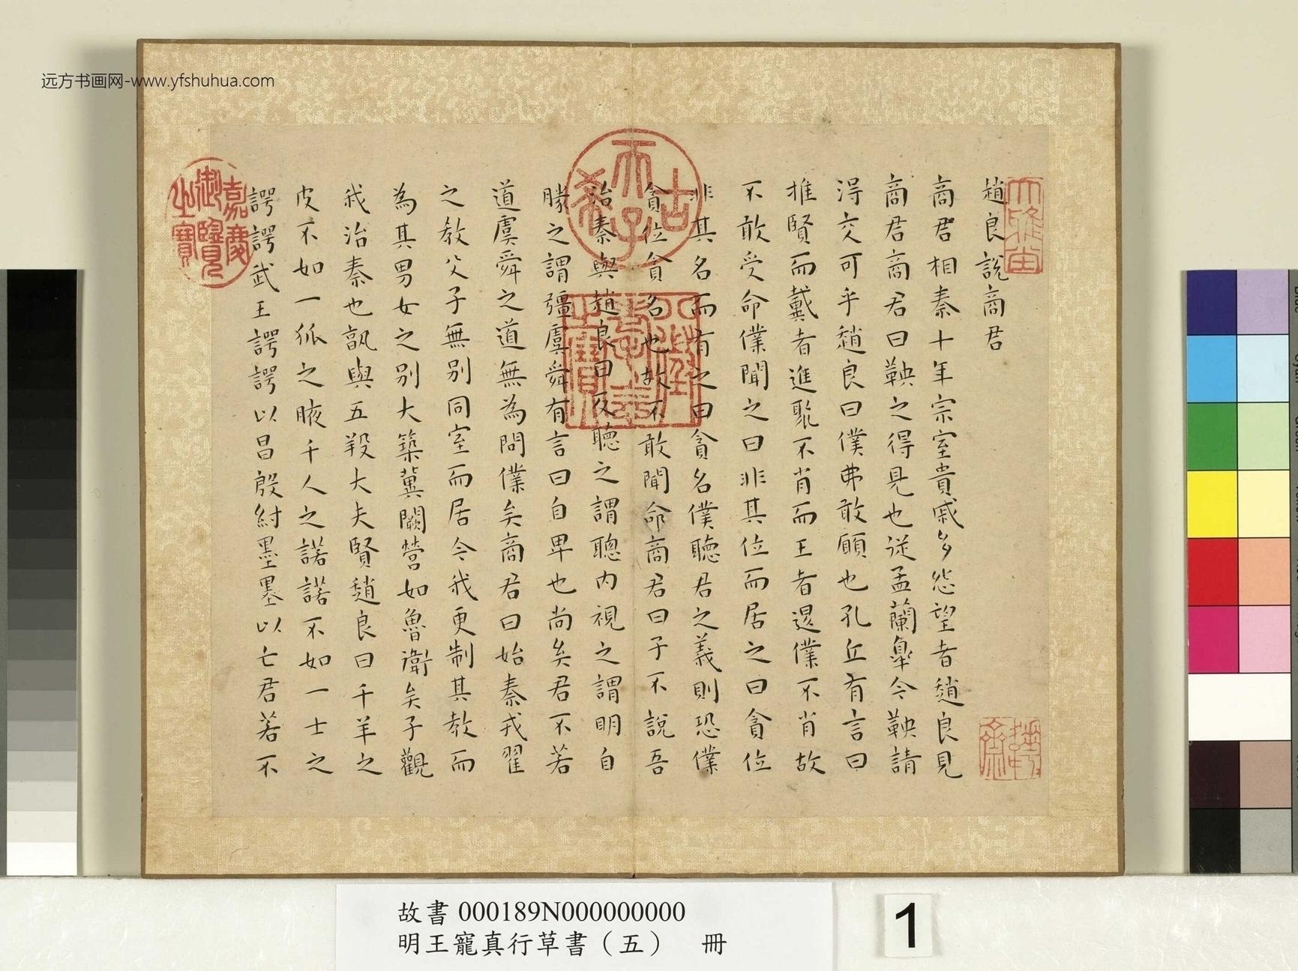 远方书画网-www.yfshuhua.com
趙良說商君
商君相秦十年宗室貴戚多怨望者趙良見
商君商君曰鞅之得見也從孟蘭皋今鞅請
淂交可乎趙良曰僕弗敢願也孔丘有言曰
推賢而戴者進聚不肖而王者退僕不肖故
不敢受命僕聞之曰非其位而居之曰貪位
非其名而有之曰貪名僕聽君之義則恐僕
貪位貪名也故不敢聞命商君曰子不說吾
治秦與趙良曰反聽之謂聰內視之謂明自
勝之謂彊虞舜有言曰自卑也尚矣君不若
道虞舜之道無為問僕矣商君曰始秦戎翟
之教父子無別同室而居今我更制其教而
為其男女之別大築冀闕營如魯衛矣子觀
我治秦也孰與五羖大夫賢趙良曰千羊之
皮不如一狐之腋千人之諾諾不如一士之
諤諤武王諤諤以昌殷紂墨墨以亡君若不
古希天子
嘉慶御覽之寶
故書 000189N000000000
明王寵真行草書（五） 冊
1